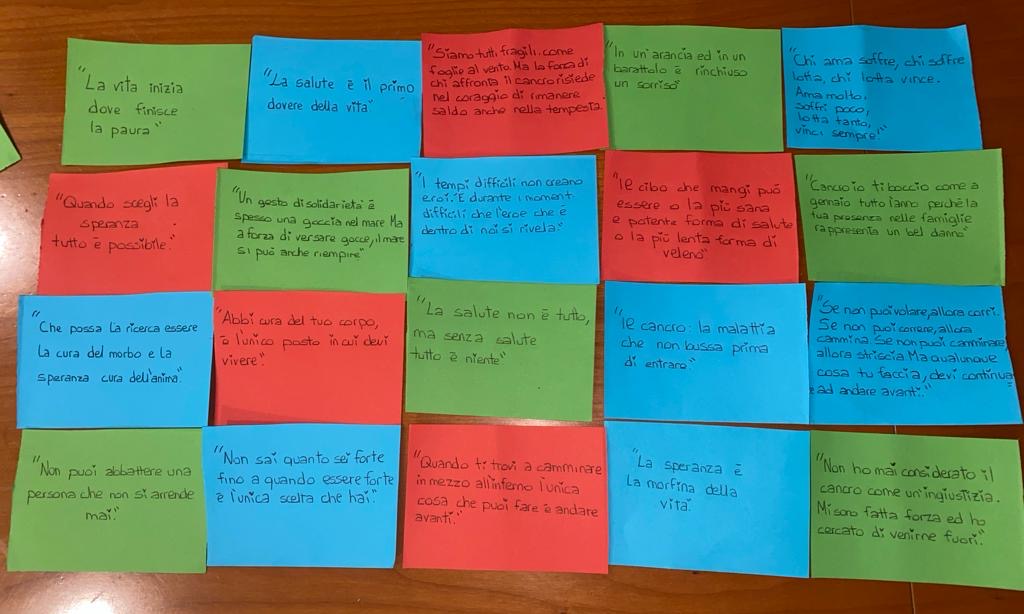 "La vita inizia
dove finisce
la paura"
"La salute è il primo
dovere della vita"
"Siamo tutti fragili, come
foglie al vento. Ma la forza di
chi affronta il cancro risiede
nel coraggio di rimanere
saldo anche nella tempesta.
"In un'arancia ed in un
barattolo è rinchiuso
un sorriso"
"Chi ama soffre, chi soffre
lotta, chi lotta vince.
Ama molto,
soffri poco,
lotta tanto,
vinci sempre!"
"Quando scegli la
speranza
tutto è possibile."
"Un gesto di solidarietà è
spesso una goccia nel mare. Ma
a forza di versare gocce, il mare
si può anche riempire"
"I tempi difficili non creano
eroi. È durante i momenti
difficili che l'eroe che è
dentro di noi si rivela."
"Il cibo che mangi può
essere o la più sana
e potente forma di salute
o la più lenta forma di
veleno"
"Cancro io ti boccio come a
gennaio tutto l'anno perchè la
tua presenza nelle famiglie
rappresenta un bel danno"
"Che possa la ricerca essere
la cura del morbo e la
speranza cura dell'anima."
"Abbi cura del tuo corpo,
è l'unico posto in cui devi
vivere"
"La salute non è tutto,
ma senza salute
tutto è niente"
"Il cancro: la malattia
che non bussa prima
di entrare"
"Se non puoi volare, allora corri.
Se non puoi correre, allora
cammina. Se non puoi camminare,
allora striscia. Ma qualunque
cosa tu faccia, devi continua
e ad andare avanti."
"Non puoi abbattere una
persona che non si arrende
mai."
"Non sai quanto sei forte
fino a quando essere forte
è l'unica scelta che hai."
"Quando ti trovi a camminare
in mezzo all'inferno l'unica
cosa che puoi fare è andare
avanti."
"La speranza è
la morfina della
vita"
"Non ho mai considerato il
cancro come un'ingiustizia.
Mi sono fatta forza ed ho
cercato di venirne fuori."